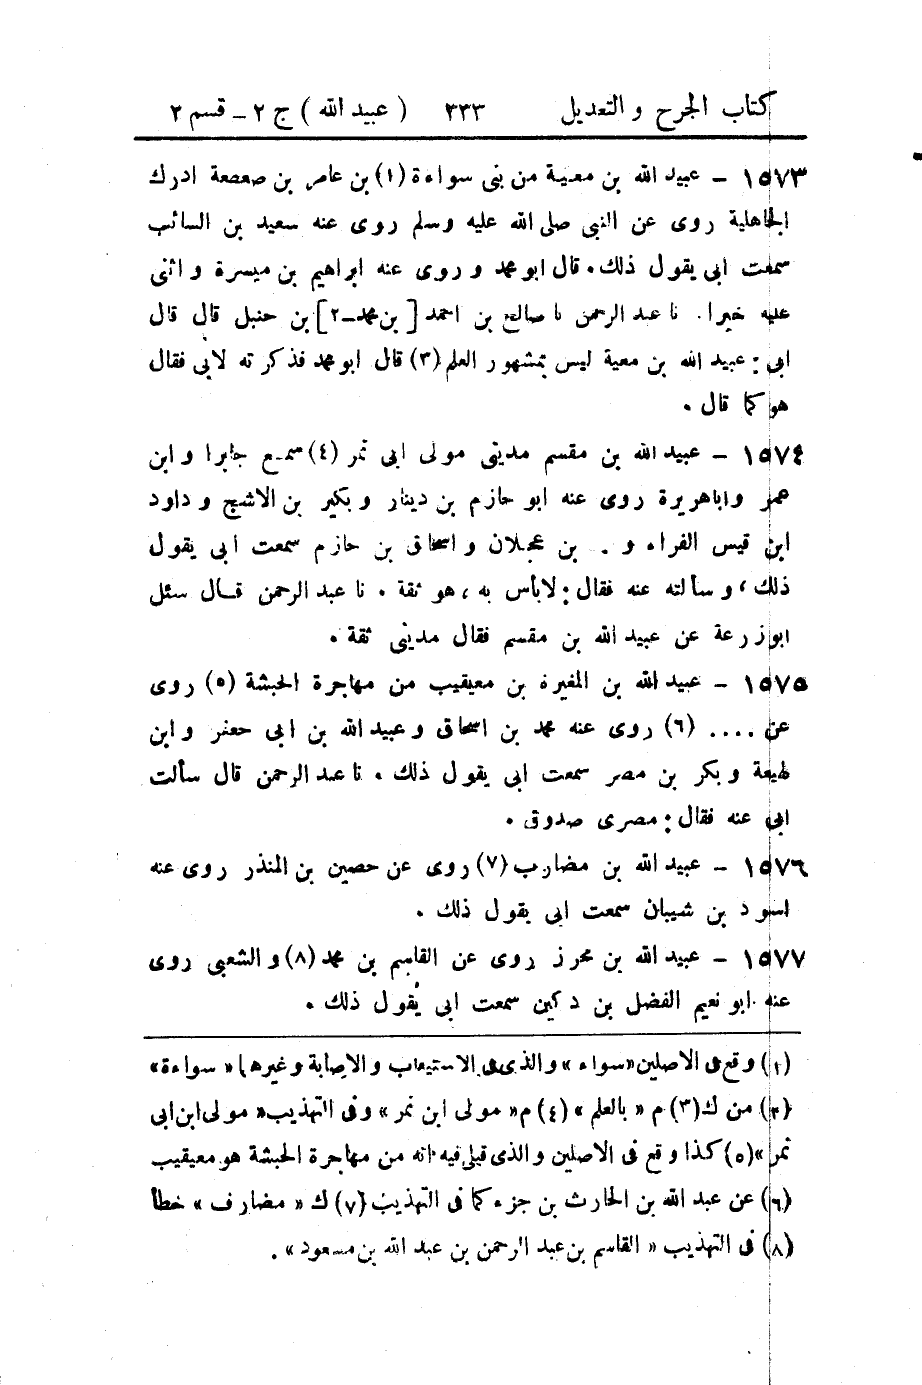 كتاب الجرح والتعديل ٣٣٣ (عبيد الله) ج ٢ - قسم ٢
١٥٧٣ - عبيد الله بن معية من بنى سواءة (١) بن عامر بن صعصعة ادرك
الجاهلية روى عن النبي صلى الله عليه وسلم روى عنه سعيد بن السائب
سمعت ابى يقول ذلك. قال ابو محمد و روى عنه ابراهيم بن ميسرة و اثنى
عليه خيرا. نا عبد الرحمن نا صالح بن احمد [بن محمد - ٢] بن حنبل قال قال
ابى: عبيد الله بن معية ليس بمشهور العلم (٣) قال ابو محمد فذكرته لابى فقال
هو كما قال.
١٥٧٤ - عبيد الله بن مقسم مدينى مولى ابى نمر (٤) سمع جابرا و ابن
عمر و اباهريرة روى عنه ابو حازم بن دينار و بكير بن الاشج و داود
ابن قيس الفراء و . بن عجلان و اسحاق بن حازم سمعت ابى يقول
ذلك، و سألته عنه فقال: لابأس به، هو ثقة. نا عبد الرحمن قال سئل
ابو زرعة عن عبيد الله بن مقسم فقال مدينى ثقة.
١٥٧٥ - عبيد الله بن المغيرة بن معيقيب من مهاجرة الحبشة (٥) روى
عن .... (٦) روى عنه محمد بن اسحاق و عبيد الله بن ابى جعفر و ابن
لهيعة و بكر بن مضر سمعت ابى يقول ذلك. نا عبد الرحمن قال سألت
ابى عنه فقال: مصرى صدوق.
١٥٧٦ - عبيد الله بن مضارب (٧) روى عن حصين بن المنذر روى عنه
اسود بن شيبان سمعت ابى يقول ذلك.
١٥٧٧ - عبيد الله بن محرز روى عن القاسم بن محمد (٨) و الشعبى روى
عنه ابو نعيم الفضل بن دكين سمعت ابى يقول ذلك.
(١) وقع فى الاصلين «سواء» والذى فى الاستيعاب والاصابة وغيرها «سواءة»
(٢) من ك (٣) م «بالعلم» (٤) م «مولى ابن نمر» وفى التهذيب «مولى ابن ابى
نمر» (٥) كذا وقع فى الاصلين والذى قيل فيه انه من مهاجرة الحبشة هو معيقيب
(٦) عن عبد الله بن الحارث بن جزء كما فى التهذيب (٧) ك «مضارف» خطأ
(٨) فى التهذيب «القاسم بن عبد الرحمن بن عبد الله بن مسعود».